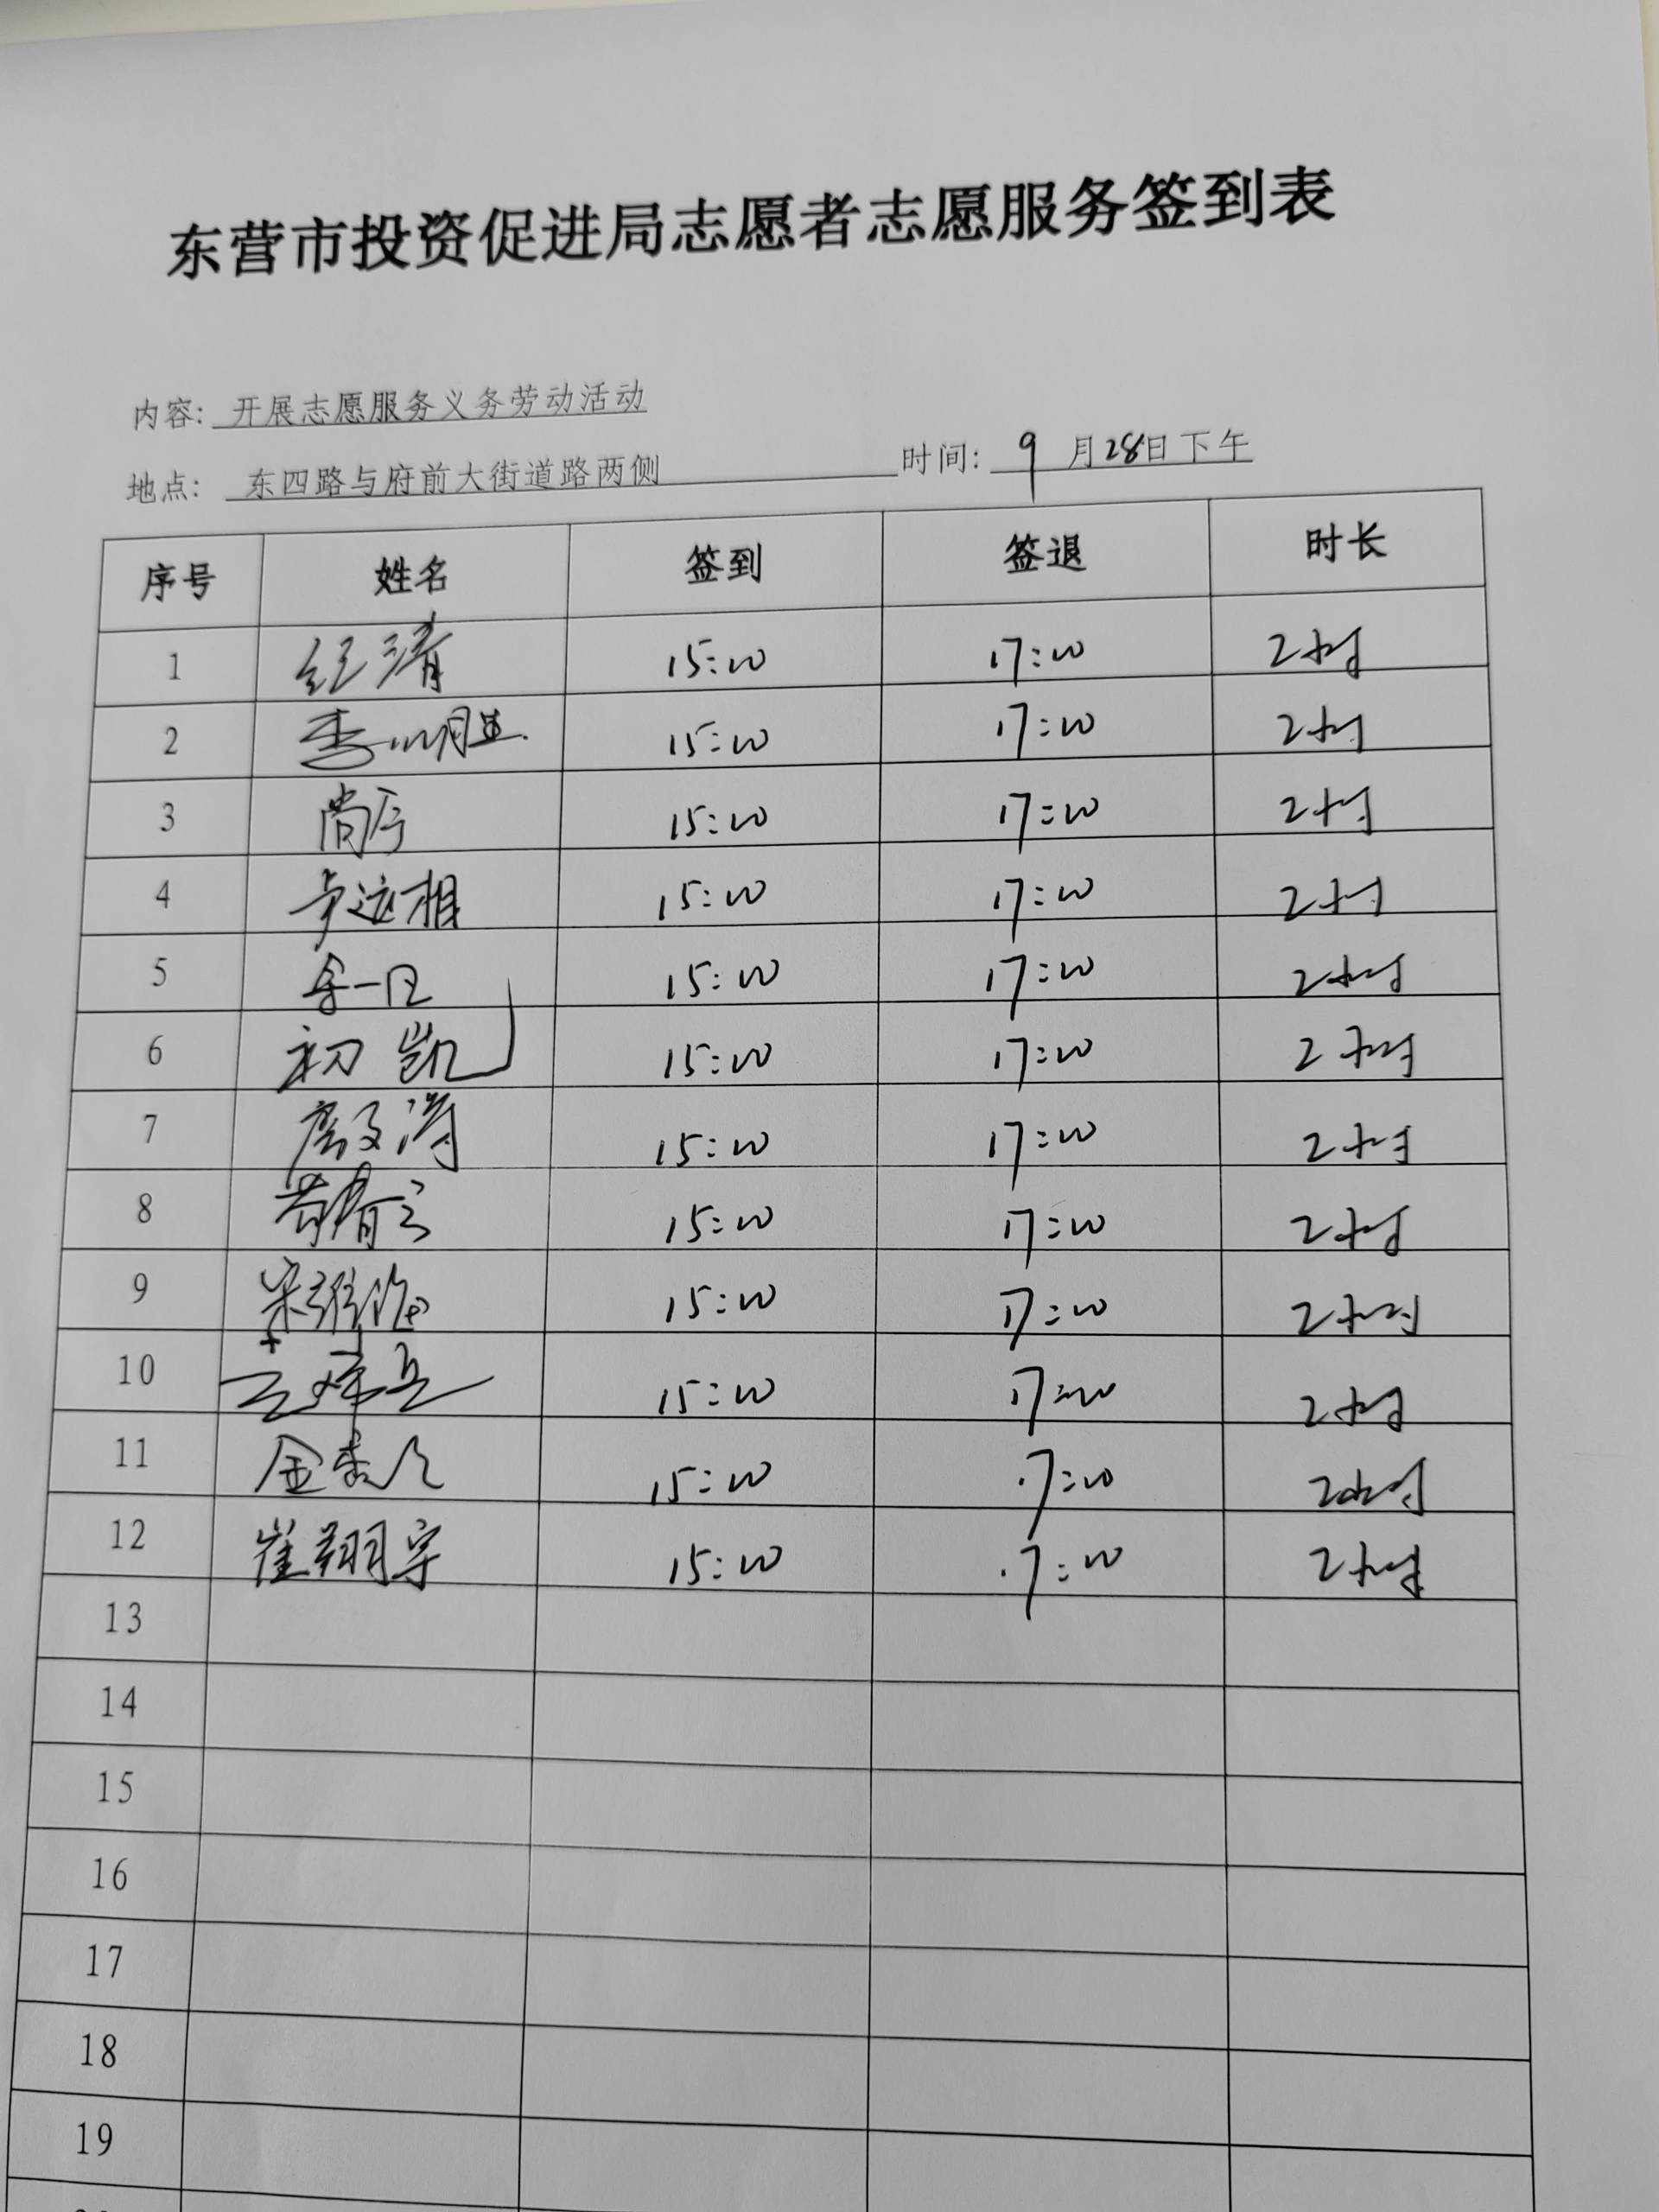 东营市投资促进局志愿者志愿服务签到表
内容: 开展志愿服务义务劳动活动
地点: 东四路与府前大街道路两侧 时间: 9月28日下午
序号 姓名 签到 签退 时长
1 纪清 15:00 17:00 2小时
2 李明胜 15:00 17:00 2小时
3 15:00 17:00 2小时
4 15:00 17:00 2小时
5 15:00 17:00 2小时
6 初凯 15:00 17:00 2小时
7 15:00 17:00 2小时
8 15:00 17:00 2小时
9 15:00 17:00 2小时
10 15:00 17:00 2小时
11 15:00 17:00 2小时
12 崔翔宇 15:00 17:00 2小时
13
14
15
16
17
18
19